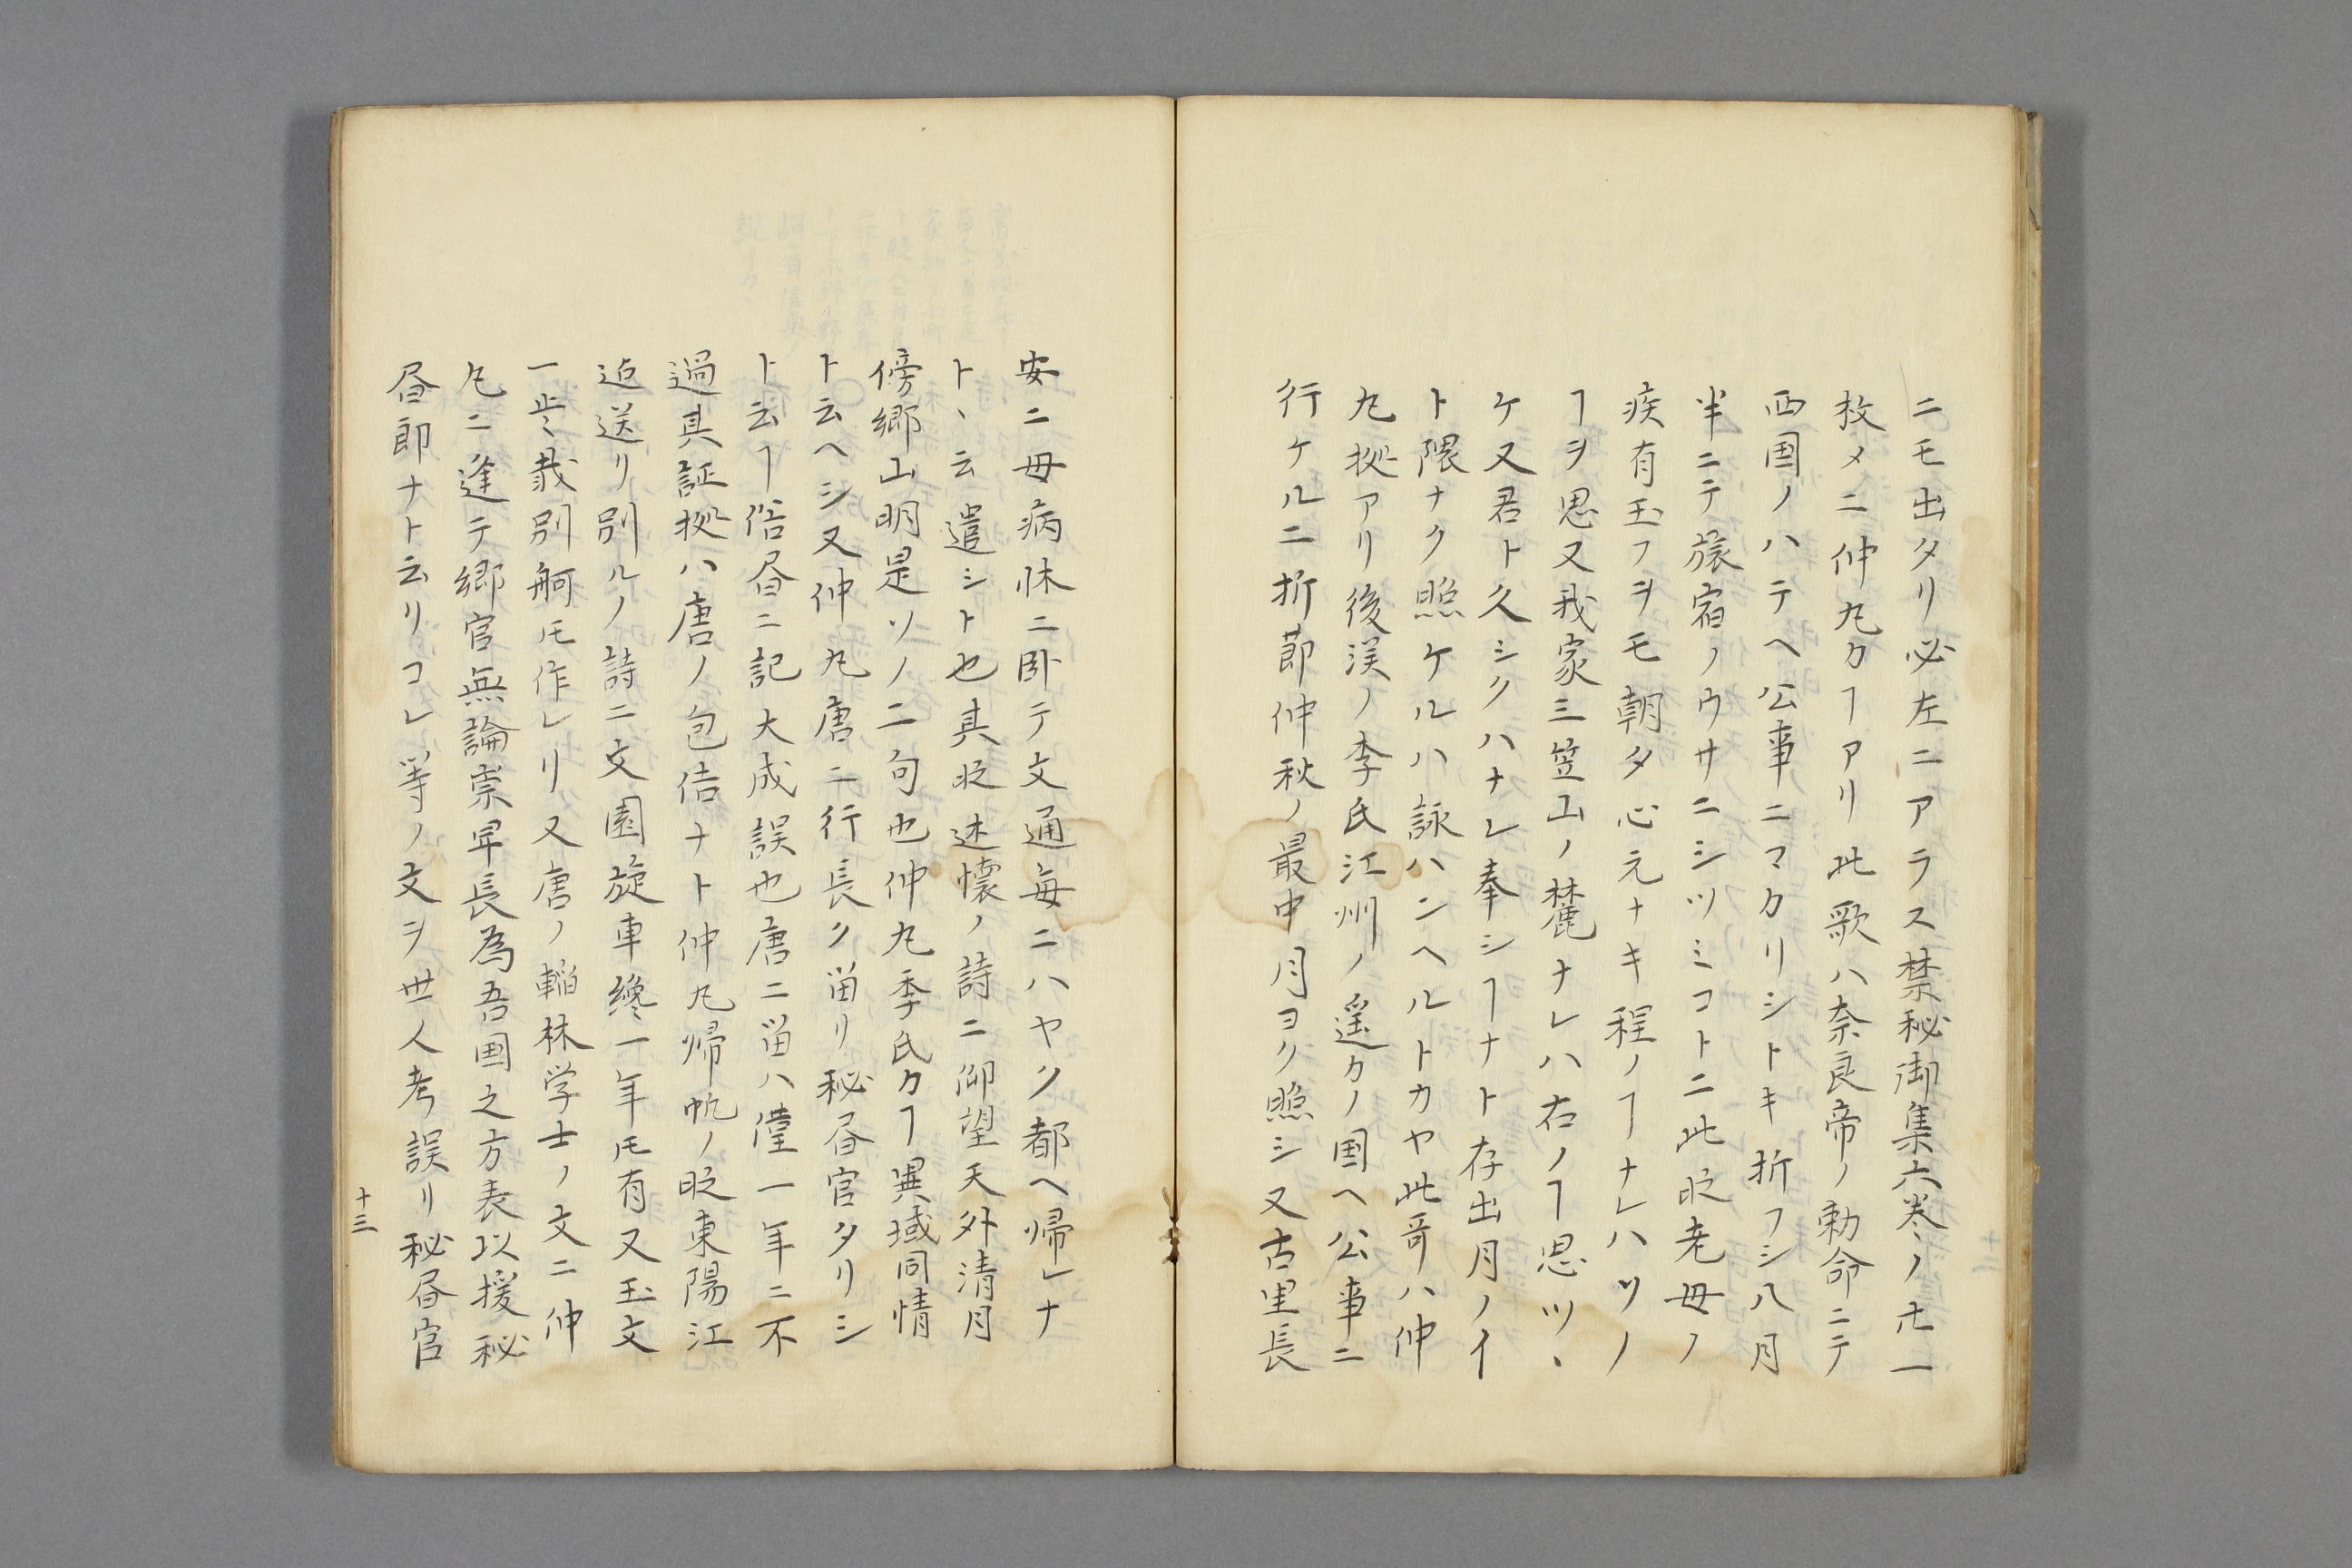 ニモ出タリ必左ニアラス禁秘御集六巻ノ廿一
枚メニ仲丸カヿアリ此歌ハ奈良帝ノ勅命ニテ
西国ノハテヘ公事ニマカリシトキ折フシ八月
半ニテ旅宿ノウサニシツミコトニ此时老母ノ
疾有玉フヲモ朝タ心元ナキ程ノヿナレハツノ
ヿヲ思又我家三笠山ノ麓ナレハ右ノヿ思ツヽ
ケ又君ト久シクハナレ奉シヿナト存出月ノイ
ト隈ナク照ケルハ詠ハンヘルトカヤ此哥ハ仲
丸拠アリ後漢ノ李氏江州ノ遥カノ国ヘ公事ニ
行ケルニ折節仲秋ノ最中月ヨク照シ又古里長
安ニ母病牀ニ卧テ文通毎ニハヤク都ヘ帰レナ
トヽ云遣シト也其时述懐ノ詩ニ仰望天外清月
傍郷山明是ソノ二句也仲丸季氏カヿ異域同情
ト云ヘシ又仲丸唐ニ行長ク畄リ秘昼官タリシ
ト云ヿ倍昼ニ記大成誤也唐ニ畄ハ僅一年ニ不
過其証拠ハ唐ノ包佶ナト仲丸帰帆ノ时東陽江
迠送リ別ルノ詩ニ文園旋車纔一年𪜈有又玉文
一学哉別舸𪜈作レリ又唐ノ輶林学士ノ文ニ仲
丸ニ逢テ郷官無論崇早長為吾国之方表以援秘
昼郎ナト云リコレ等ノ文ヲ世人考誤リ秘昼官
十三